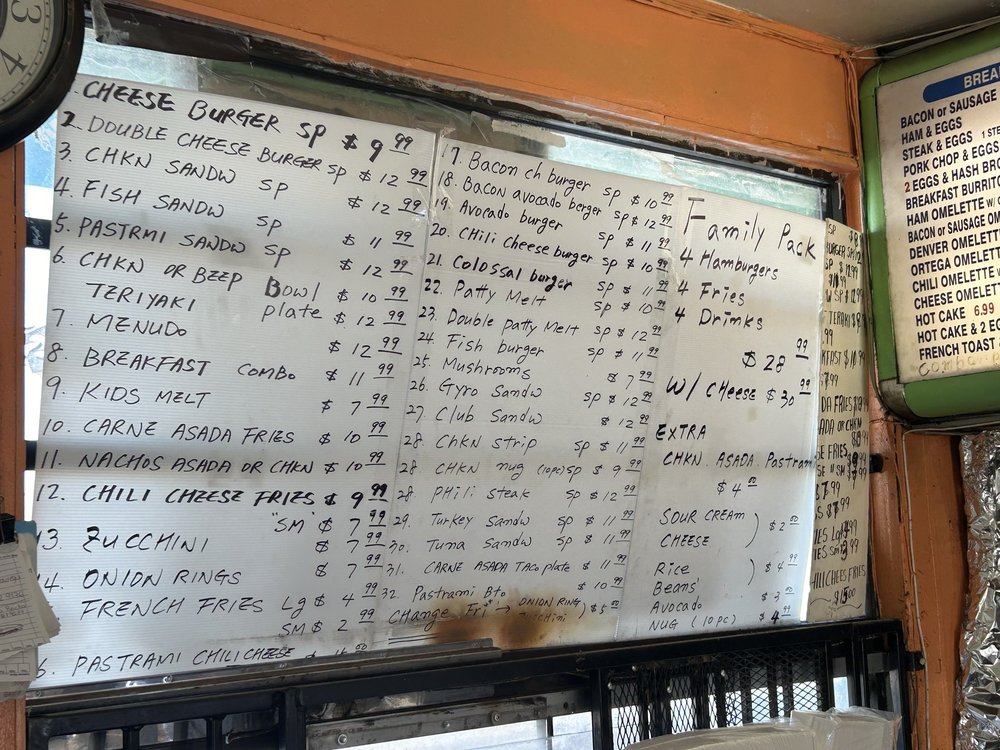 CHEESE BURGER SP $ 9 99
2. DOUBLE CHEESE BURGER SP $ 12 99
3. CHKN SANDW SP $ 12 99
4. FISH SANDW SP $ 11 99
5. PASTRMI SANDW SP $ 12 99
6. CHKN OR BEEP BOWL $ 10 99
TERIYAKI plate $ 12 99
7. MENUDO $ 12 99
8. BREAKFAST COMBO $ 11 99
9. KIDS MELT $ 7 99
10. CARNE ASADA FRIES $ 10 99
11. NACHOS ASADA OR CHKN $ 10 99
12. CHILI CHEESE FRIES $ 9 99
"SM" $ 7 99
13. ZUCCHINI $ 7 99
14. ONION RINGS $ 7 99
FRENCH FRIES Lg $ 4 99
SM $ 2 99
6. PASTRAMI CHILI CHEESE
17. Bacon ch burger SP $ 10 99
18. Bacon avocado berger SP $ 12 99
19. Avocado burger SP $ 11 99
20. CHili Cheese burger SP $ 10 99
21. Colossal burger SP $ 11 99
22. Patty Melt SP $ 10 99
23. Double patty Melt SP $ 12 99
24. Fish burger SP $ 11 99
25. Mushrooms $ 7 99
26. Gyro Sandw SP $ 12 99
27. Club Sandw $ 12 99
28. Chkn strip SP $ 11 99
28. CHKN nug (10pc) SP $ 9 99
28. PHili steak SP $ 12 99
29. Turkey Sandw SP $ 11 99
30. Tuna Sandw SP $ 11 99
31. CARNE ASADA TACO plate $ 11 99
32 Pastrami Bto $ 10 99
CHange Fri's → ONION RING
Zucchini ) $ 5 00
Family Pack
4 Hamburgers
4 Fries
4 Drinks
$ 28 99
W/ CHeese $ 30 99
EXTRA
CHKN. ASADA. Pastram
$ 4 00
SOUR CREAM
CHEESE ) $ 2 00
Rice
Beans ) $ 4 99
Avocado $ 3 00
NUG (10PC) $ 4 99
BREA
BACON or SAUSAGE
HAM & EGGS
STEAK & EGGS 1 STE
PORK CHOP & EGGS
2 EGGS & HASH BRO
BREAKFAST BURRITO
HAM OMELETTE W/ C
BACON or SAUSAGE OM
DENVER OMELETT
ORTEGA OMELETT
CHILI OMELETTE W
CHEESE OMELET
HOT CAKE 6.99
HOT CAKE & 2 EG
FRENCH TOAST